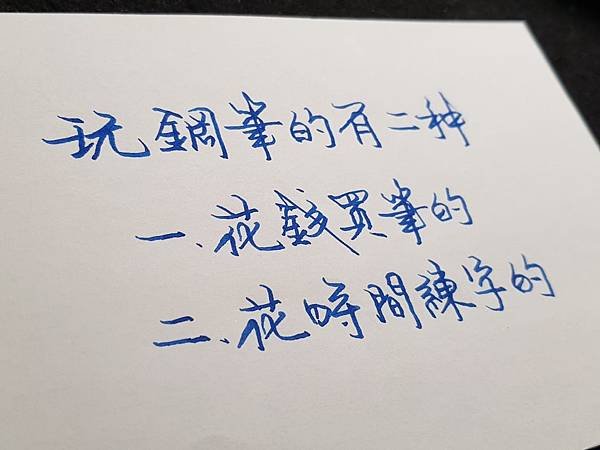 玩鋼筆的有二种
一、花錢買筆的
二、花時間練字的